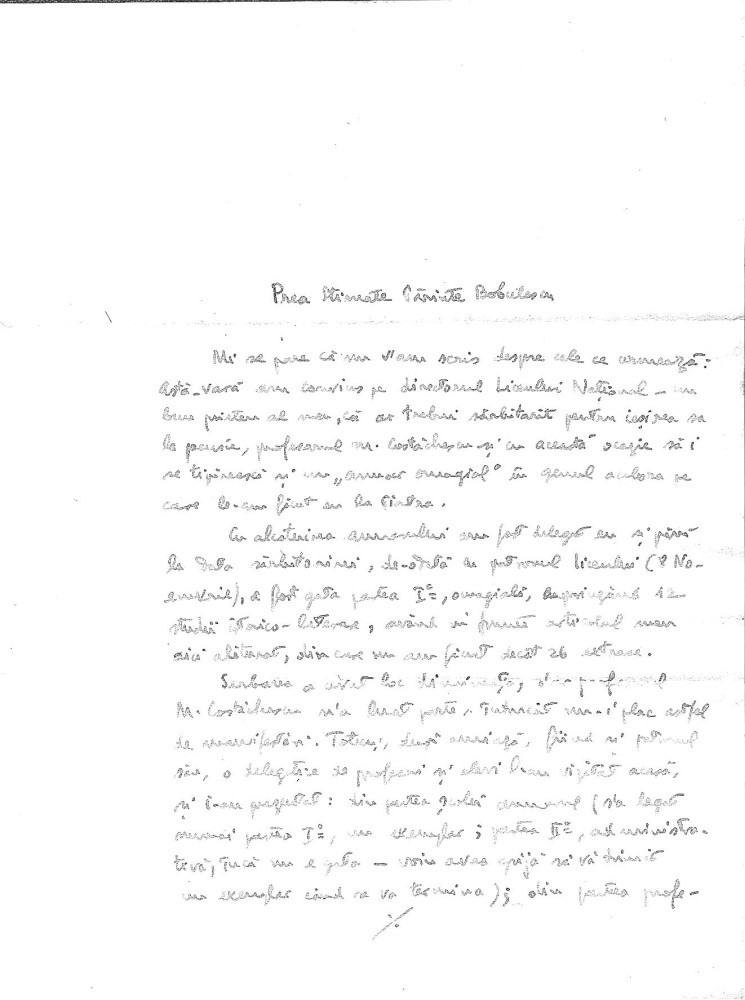 Prea Stimate Părinte Bobulescu
Mi se pare că nu v'am scris despre cele ce urmează:
Astă-vară am convins pe directorul Liceului Național – un
bun prieten al meu, că ar trebui sărbătorit pentru ieșirea sa
la pensie, profesorul M. Costăchescu și cu această ocazie să i
se tipărească și un „anuar omagial" în genul acelora pe
care le-am făcut eu la Piatra.
Cu alcătuirea anuarului am fost delegat eu și până
la data sărbătorirei, de-odată cu patronul liceului (8 No-
emvrie), a fost gata partea Iª, omagială, cuprinzând 12
studii istorico-literare, având în frunte articolul meu
aici alăturat, din care nu am făcut decât 26 extrase.
Serbarea a avut loc dimineața, d-l profesorul
M. Costăchescu n'a luat parte, întrucât nu-i plac astfel
de manifestări. Totuși, după amiază, fiind și patronul
său, o delegație de profesori și elevi l-au vizitat acasă,
și i-au prezentat: din partea școlei anuarul (s'a legat
numai partea Iª, un exemplar; partea IIª, administra-
tivă, încă nu e gata – voiu avea grijă să vă trimit
un exemplar când se va termina); din partea profe-
./.